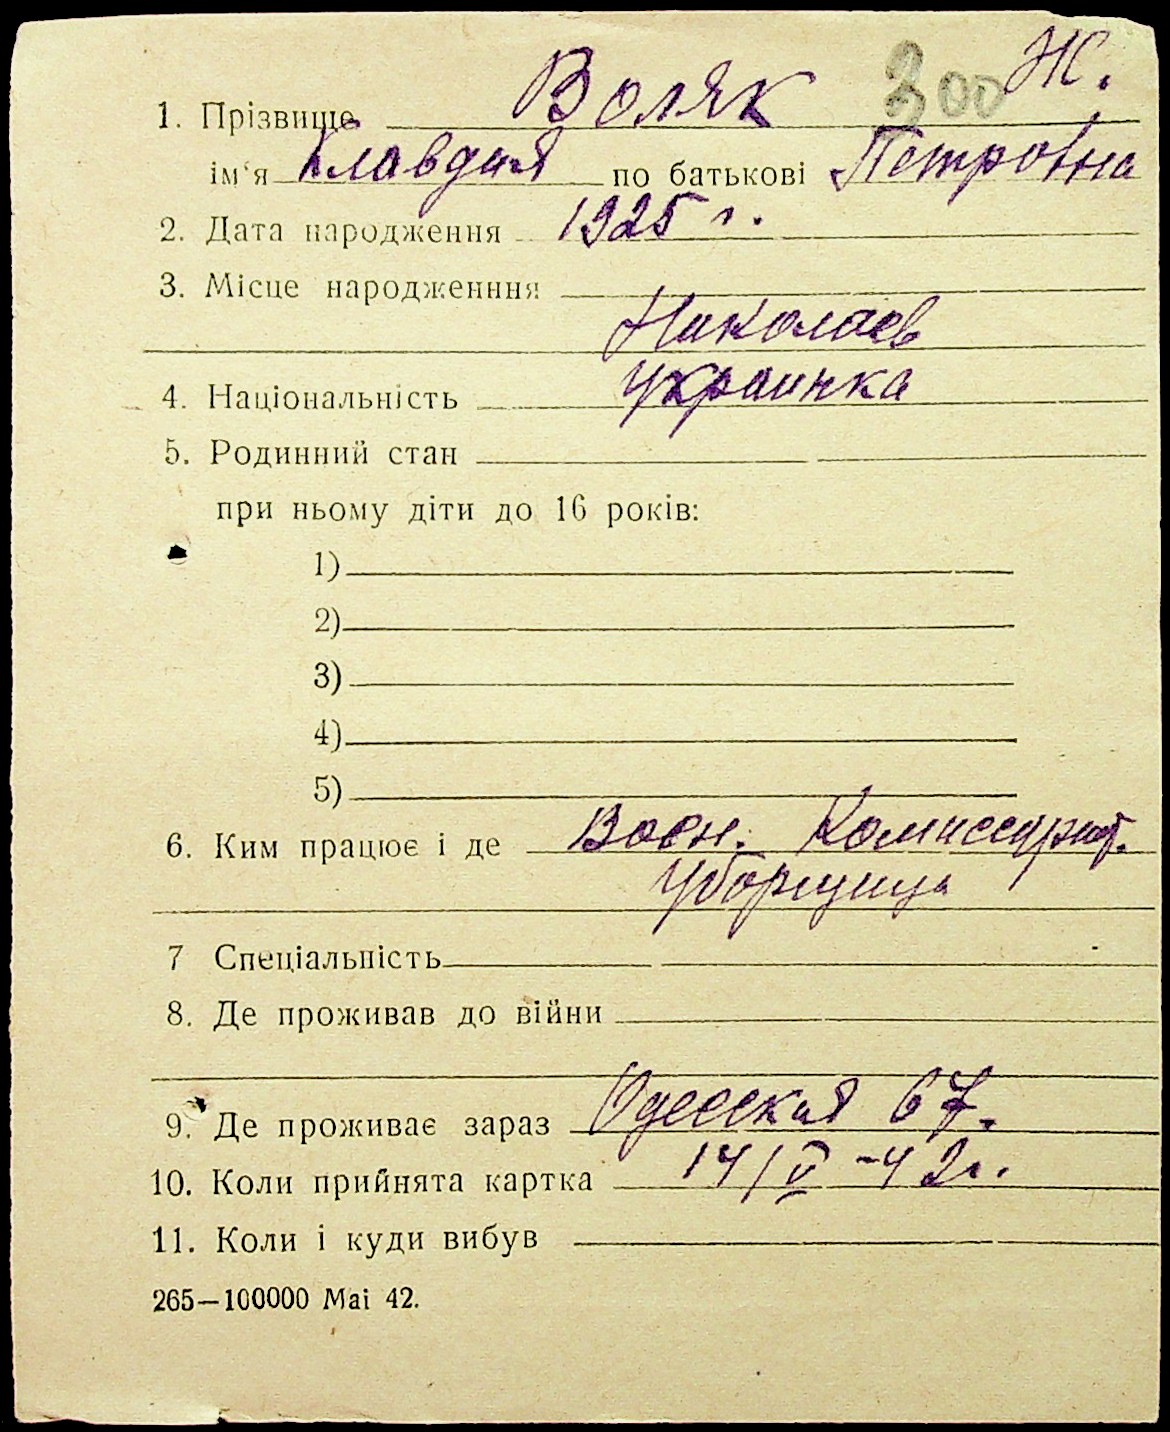 300 Ж.
1. Прізвище Воляк
ім'я Клавдия по батькові Петровна
2. Дата народження 1925 г.
3. Місце народженння
Николаев
4. Національність украинка
5. Родинний стан
при ньому діти до 16 років:
1)
2)
3)
4)
5)
6. Ким працює і де Воен. Комиссариат.
Уборщица
7 Спеціальність
8. Де проживав до війни
9. Де проживає зараз Одесская 67.
10. Коли прийнята картка 14/V-42г.
11. Коли і куди вибув
265—100000 Mai 42.